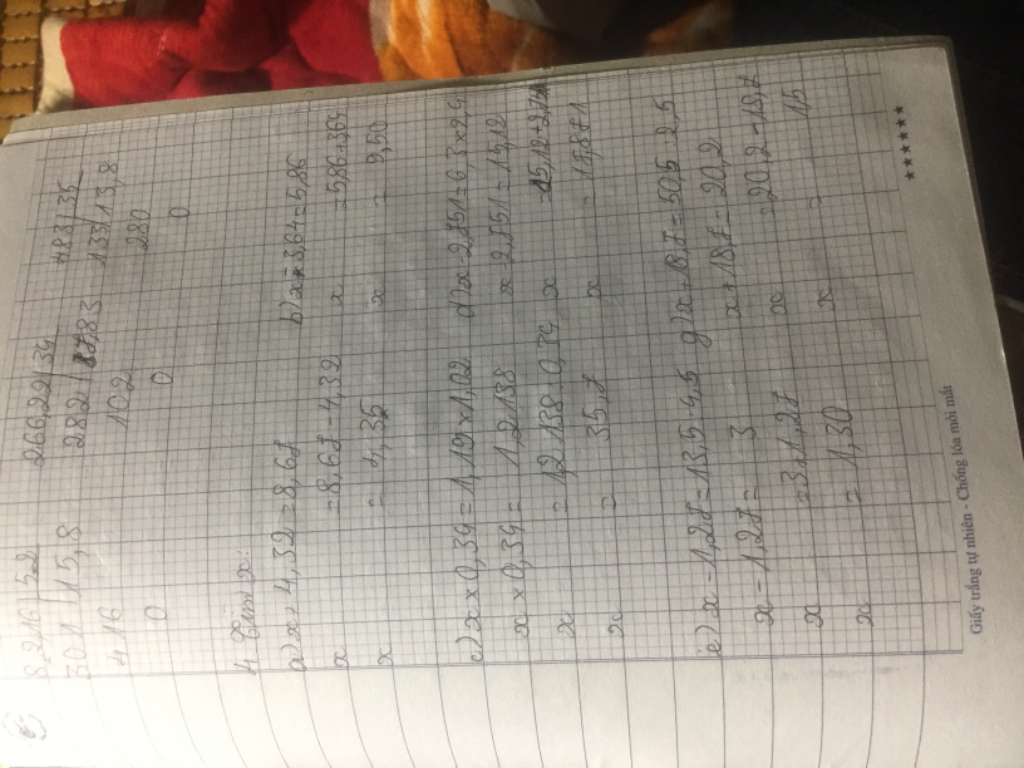 8216 | 52 266,22 | 34 483 | 35
301 | 15,8 282 | 7,83 133 | 13,8
416 102 280
0 0 0
4 Tìm x:
a) x + 4,32 = 8,67 b) x - 3,64 = 5,86
x = 8,67 - 4,32 x = 5,86 + 3,64
x = 4,35 x = 9,50
c) x × 0,34 = 1,19 × 1,02 d) x - 2,751 = 6,3 × 2,4
x × 0,34 = 1,2138 x - 2,751 = 15,12
x = 1,2138 : 0,34 x = 15,12 + 2,751
x = 35,7 x = 17,871
e) x - 1,27 = 13,5 : 4,5 g) x + 18,7 = 50,5 : 2,5
x - 1,27 = 3 x + 18,7 = 20,2
x = 3 + 1,27 x = 20,2 - 18,7
x = 1,30 x = 1,5
Giấy trắng tự nhiên - Chống lóa mỏi mắt